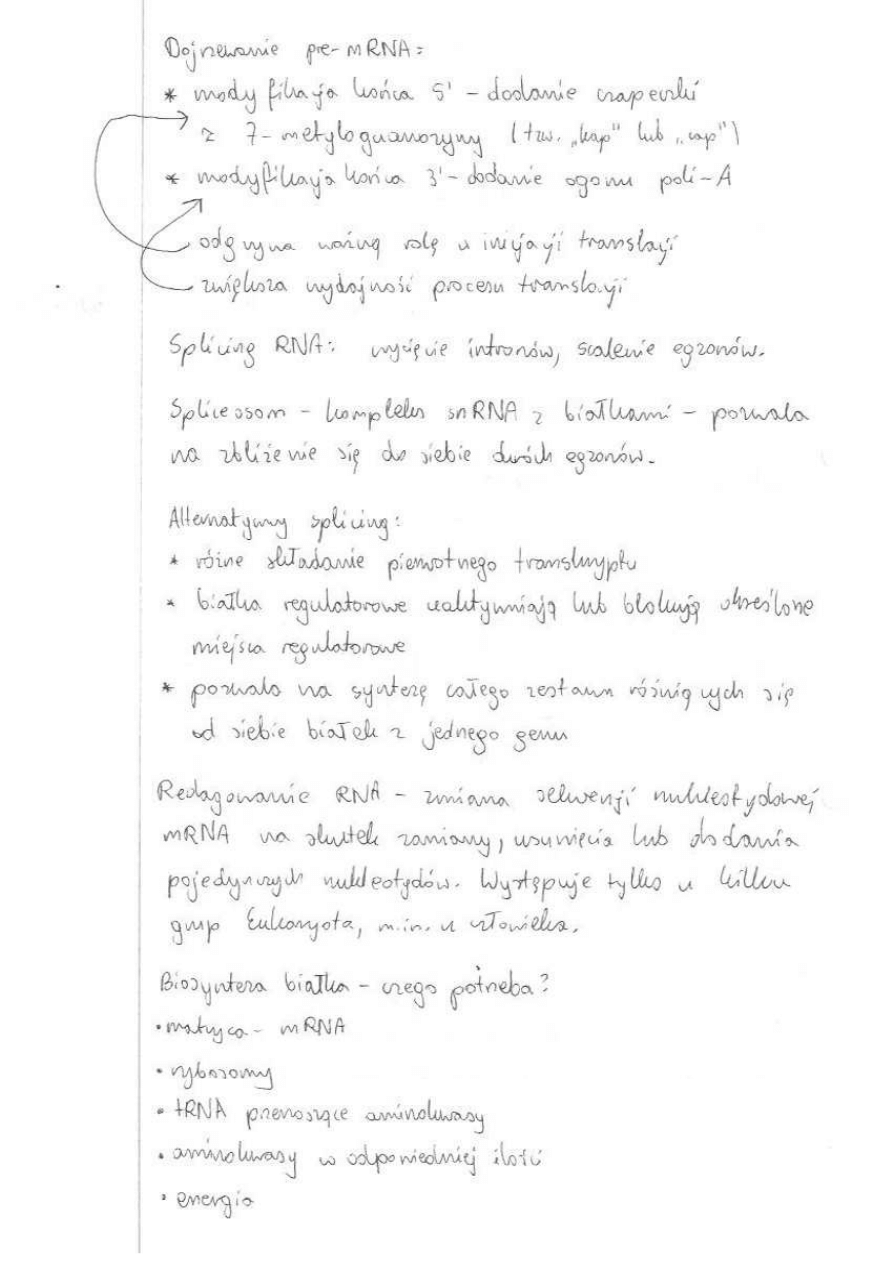 Dojrzewanie pre-mRNA:
* modyfikacja końca 5' - dodanie czapeczki
z 7-metyloguanozyny (tzw. „kap" lub „cap")
* modyfikacja końca 3' - dodanie ogonu poli-A
odgrywa ważną rolę w inicjacji translacji
zwiększa wydajność procesu translacji
Splicing RNA: wycięcie intronów, scalenie egzonów.
Spliceosom - kompleks snRNA z białkami - pozwala
na zbliżenie się do siebie dwóch egzonów.
Alternatywny splicing:
* różne składanie pierwotnego transkryptu
* białka regulatorowe uaktywniają lub blokują określone
miejsca regulatorowe
* pozwala na syntezę całego zestawu różniących się
od siebie białek z jednego genu
Redagowanie RNA - zmiana sekwencji nukleotydowej
mRNA na skutek zamiany, usunięcia lub dodania
pojedynczych nukleotydów. Występuje tylko u kilku
grup Eukaryota, m.in. u człowieka.
Biosynteza białka - czego potrzeba?
• matryca - mRNA
• rybosomy
• tRNA przenoszące aminokwasy
• aminokwasy w odpowiedniej ilości
• energia